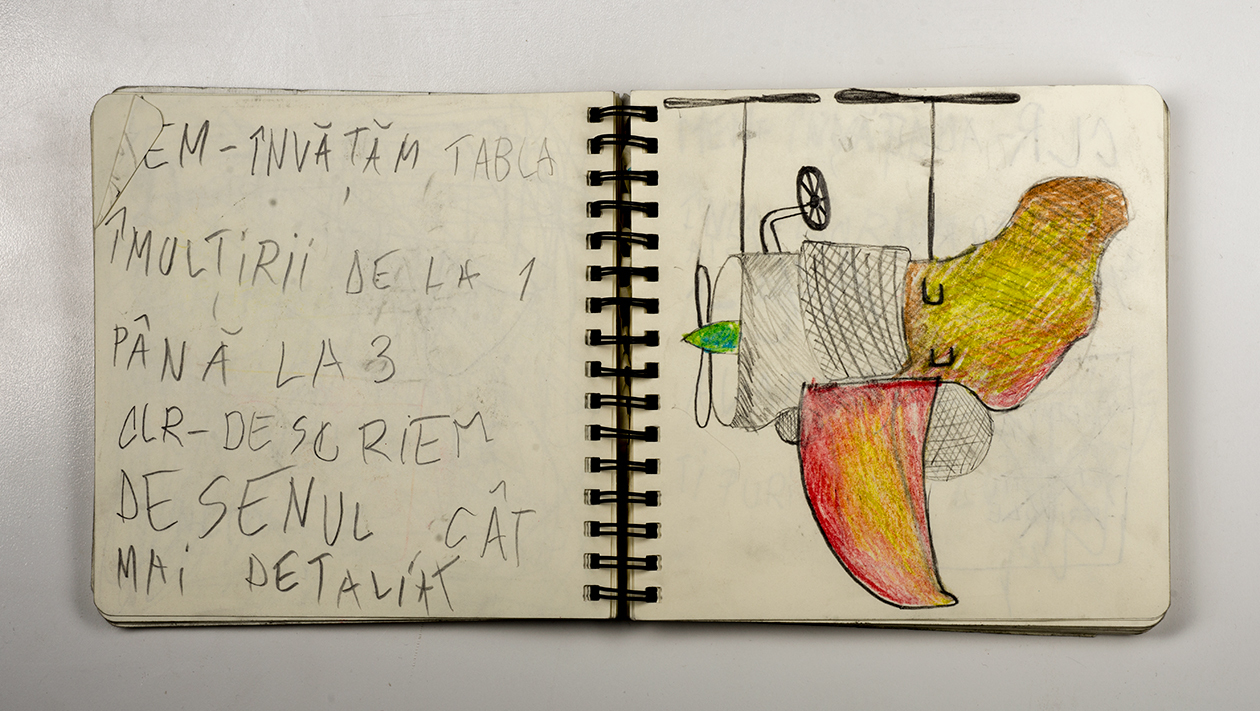 DEM-ÎNVĂȚĂM TABLA
ÎMULȚIRII DE LA 1
PÂNĂ LA 3
CLR-DESCRIEM
DESENUL CÂT
MAI DETALIAT